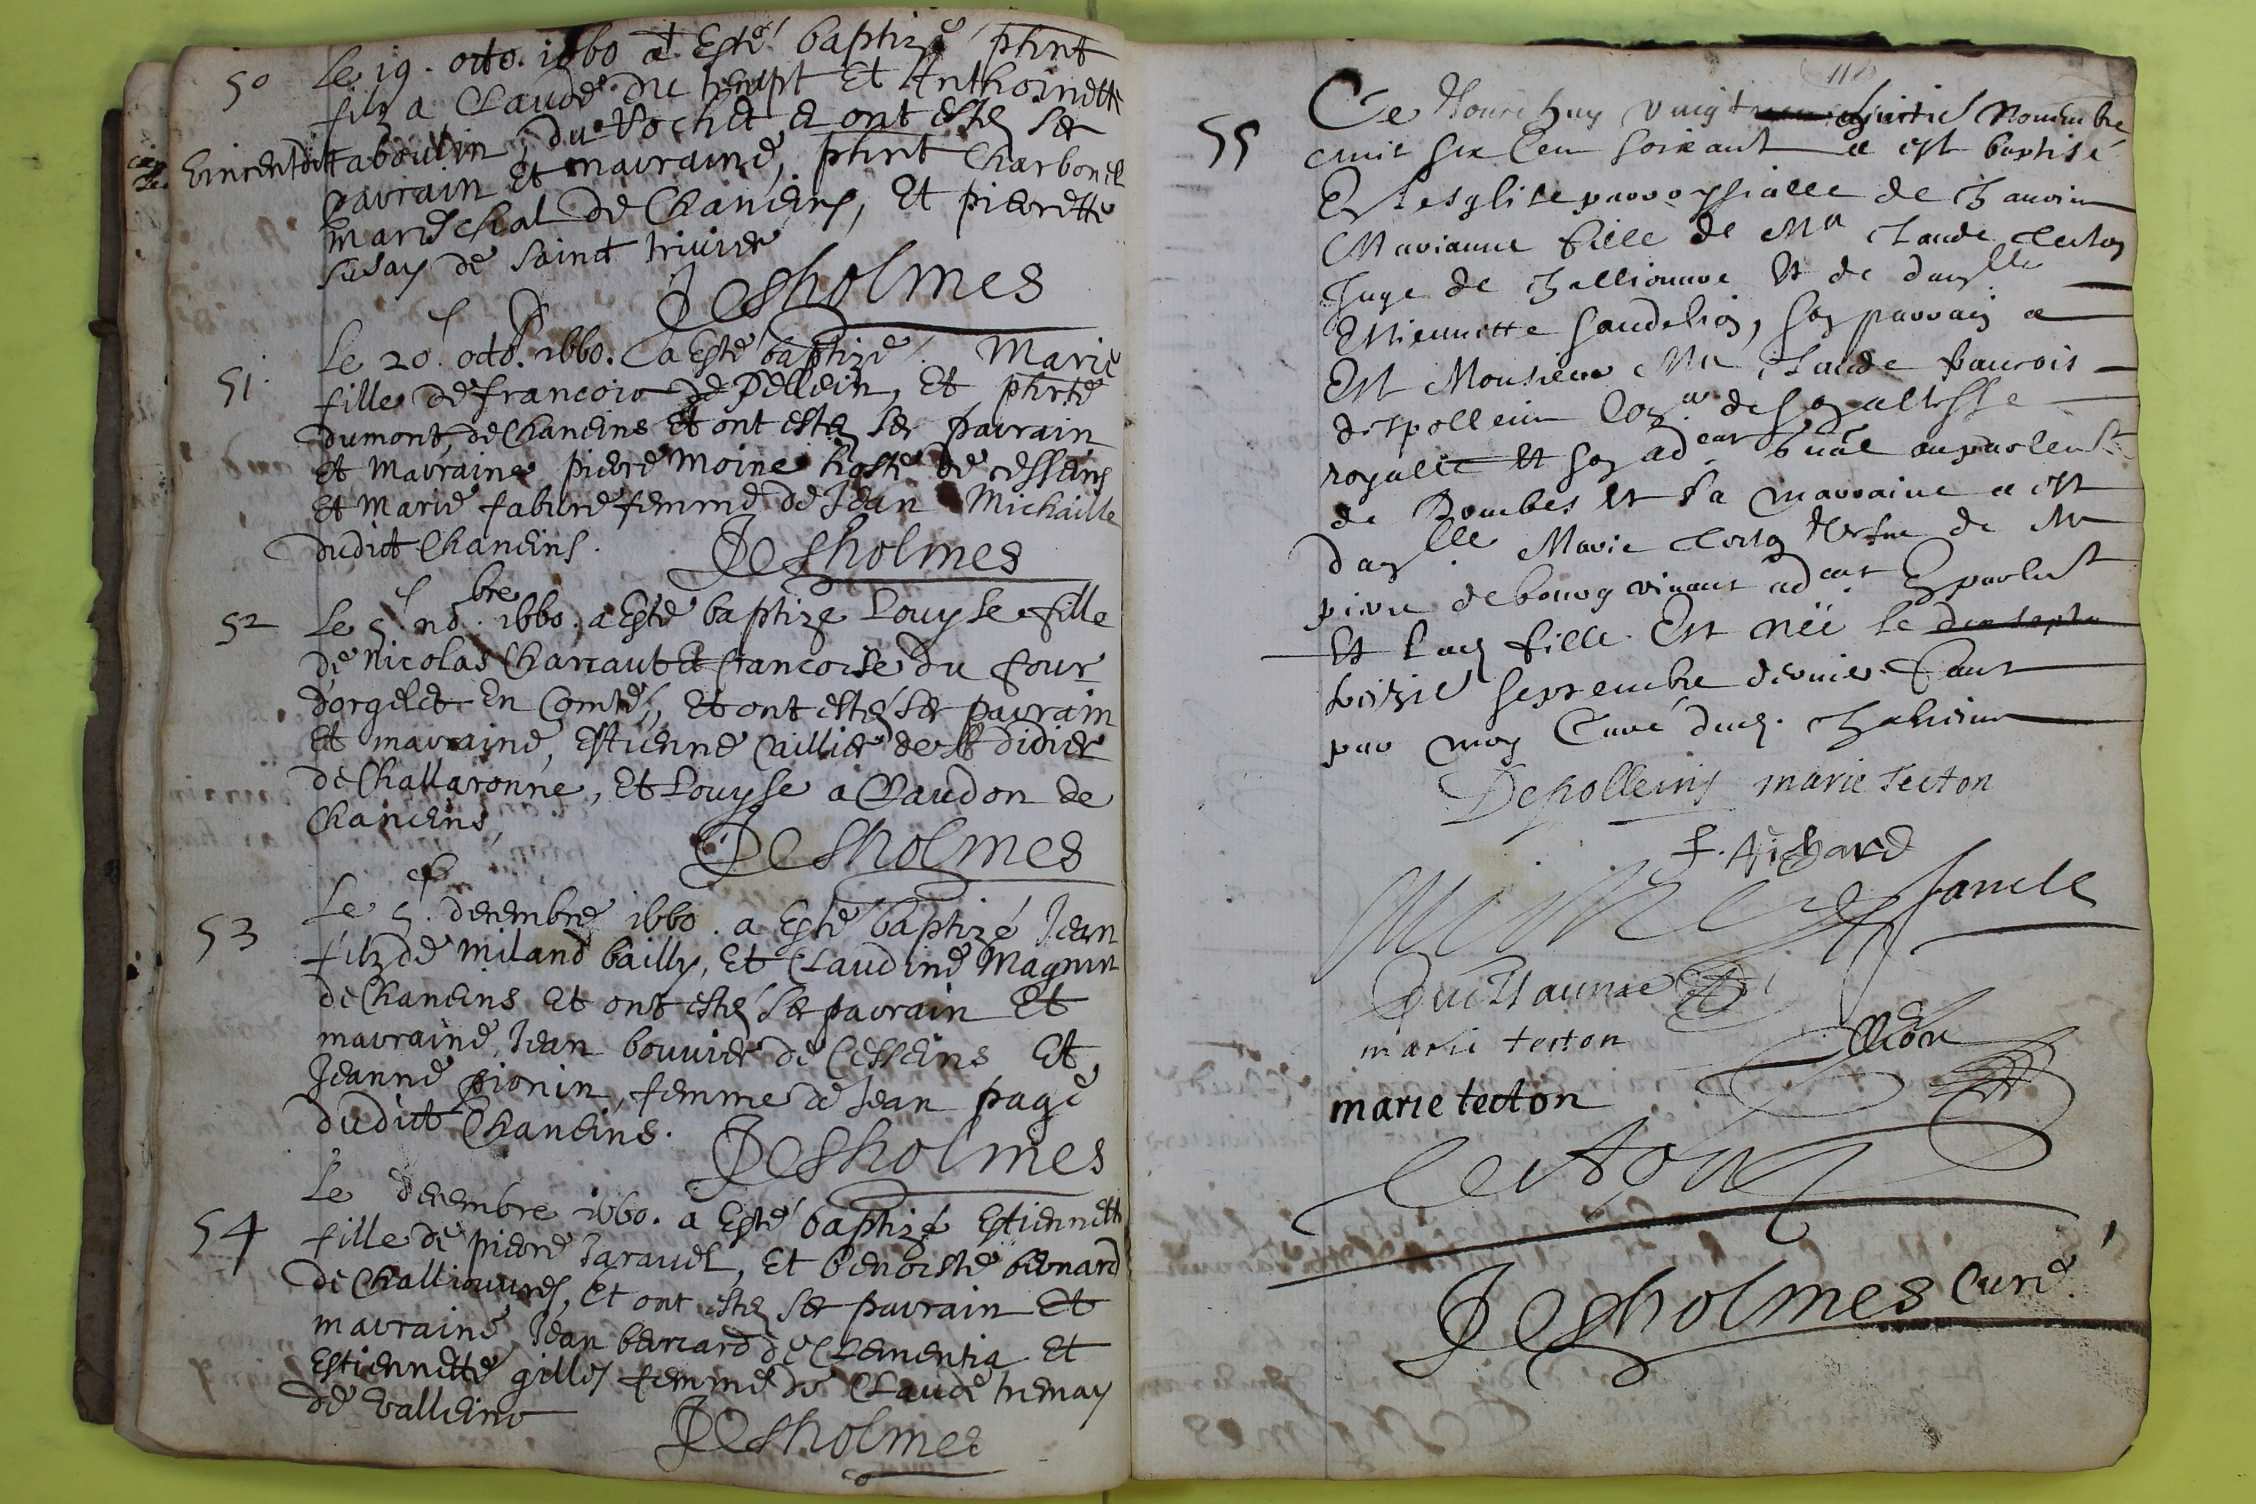 50
Le 19. octo. 1660 a Esté baptizé phrt
filz a Claude du tempt Et Anthoinette
Vincent dit aboulin, du Vochet et ont estez ses
parrain Et marraine, phrt Charbonel
mareschal de Chaneins, Et pierrette
suday de sainct trivier
Desholmes
51.
Le 20. octo. 1660. a Esté baptize. Marie
fille de francois de Pellein, Et phrte
dumont, de Chaneins Et ont estez ses parrain
Et Marraine pierre Moine hoste de cesseins
Et Marie fabvre femme de Jean Michaille
dudict Chaneins.
Desholmes
52
Le 5. nobre. 1660. a Esté baptize Louyse fille
de Nicolas Charraut et francoise du four
dorgelet En Comté, Et ont estez ses parrain
Et marraine, Estienne Caillier de St didier
de Challaronne, Et Louyse a Claudon de
Chaneins,
Desholmes
53
Le 5. decembre 1660. a Esté baptizé Jean
filz de Miland bailly, Et Claudine Magnin
de Chaneins Et ont estez ses parrain Et
marraine, Jean bouvier de Cesseins Et
Jeanne pionin, femme de Jean page
dudict Chaneins.
Desholmes
54
Le decembre 1660. a Esté baptizé Estiennette
fille de pierre taravel, Et benoiste bernard
de Challiouvres, Et ont estez ses parrain Et
marraine, Jean bernard de Clementia Et
Estiennette gilles femme de Claude tremay
de Valleins
Desholmes
118
55
Ce Jourdhuy vingt huictie Novembre
mil six cent soixant a est baptisé
En lesglise parroyssialle de Chanein
Marianne fille de Me Claude Tecton
Juge de Challiouvre Et de damlle
Estiennette Gaudelion, son parrain a
Est Monsieur Me Claude francois
despollein Conr de son altesse
royalle Et son adcat gnal au parlemt
de Dombes Et sa marraine a est
damlle Marie Tecton vefve de Me
pierre debourg vivant adcat En parlemt
Et lad fille Est née le dix septie
seizie septembre dernier. Faict
par moy Curé dud. Chaneins
Depolleins marie Tecton
f. Richard
Janele
Duvillaume
marie tecton
marie tecton
Tecton
Desholmes Curé.